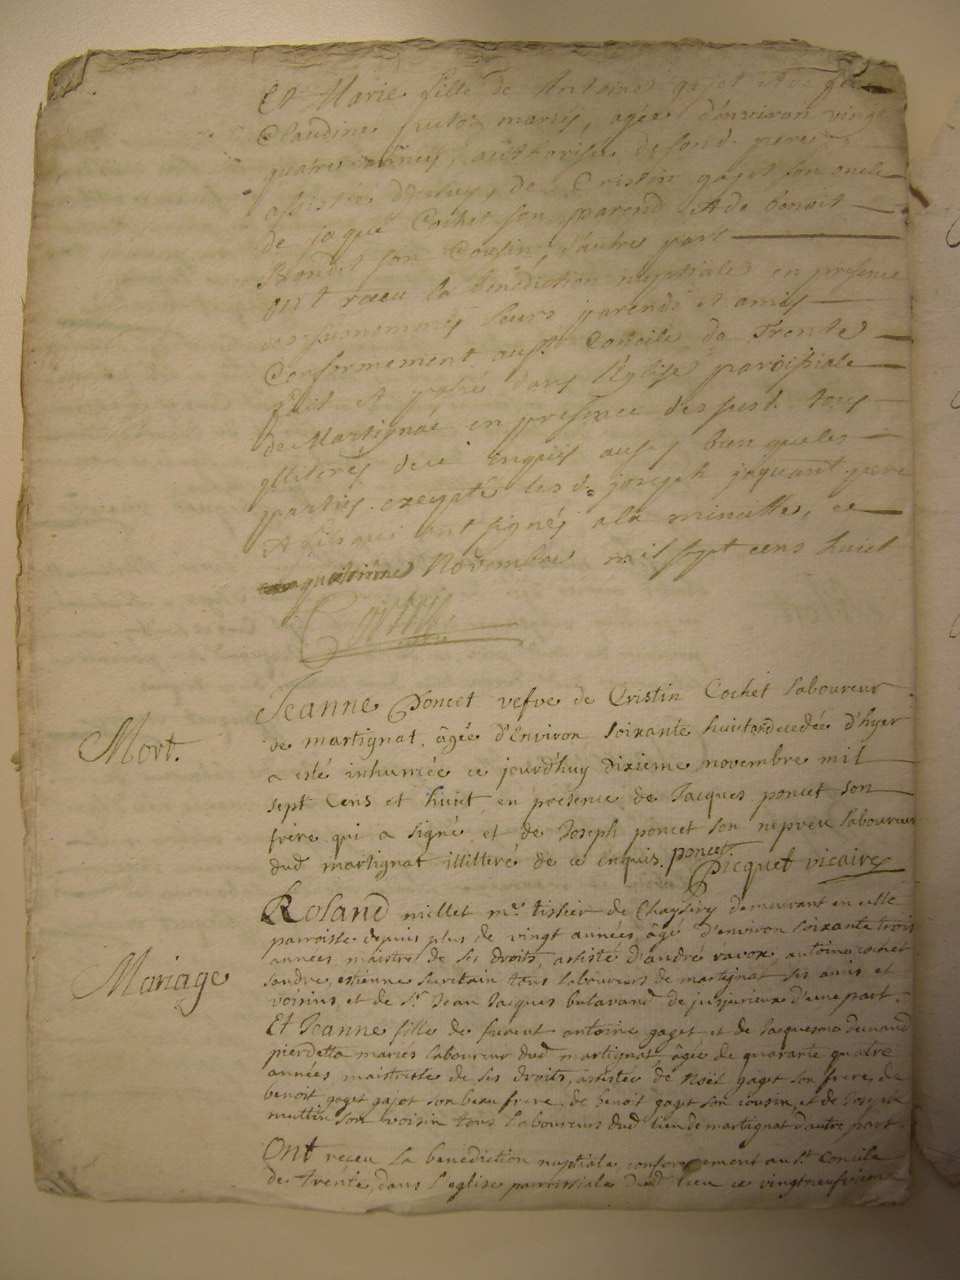 Et Marie fille de Antoine gajet et de feue
Claudine mariés, agée d'environ vingt
quatre années, authorisée de son d. pere
assistée d'iceluy, de Cristin gajet son oncle
de jaque Cochet son parend et de benoit
Bondet son Cousin, d'autre part
Ont receu la bénédiction nuptiale en presence
des susnommés leurs parends et amis
Conformement au st. Concile de Trente
fait et passé dans l'église paroissiale
de Martignat en presence des susd. tous
illiterés de ce enquis aussy bien que les
parties excepté les d. joseph jaquant pere
et fils qui ont signés a la minutte, ce
quatrieme Novembre mil sept cens huict
Jeanne Poncet vefve de Cristin Cochet laboureur
Mort.
de martignat, âgée d'Environ soixante huit ans decedée d'hyer
a esté inhumée ce jourd'huy dixieme novembre mil
sept Cens et huict en presence de Jacques poncet son
frère qui a signé et de Joseph poncet son nepveu laboureur
dud martignat illitteré de ce enquis. poncet.
Picquet vicaire
Roland millet mre. tissier de Chaysiry demeurant en cette
parroisse depuis plus de vingt années, âgé d'environ soixante trois
années maistre de ses droits, assisté d'andré ravox, antoine cochet
Mariage
estienne tous laboureurs de martignat ses amis et
voisins, et de Sr. Jean Jacques butavand de jusjurieux d'une part.
Et Jeanne fille de furent antoine gaget et de Jacquema
pierdetta mariés laboureur dud martignat, âgée de quarante quatre
années, maistresse de ses droits, assistée de Noël gaget son frere, de
benoit gaget gajot son beau frere, de benoit gaget son cousin, et de Joseph
son voisin tous laboureurs dud lieu de martignat d'autre part.
Ont receu la benediction nuptiale conformement au st. Concile
de trente, dans l'eglise parroissiale dud lieu ce vingtneufvieme